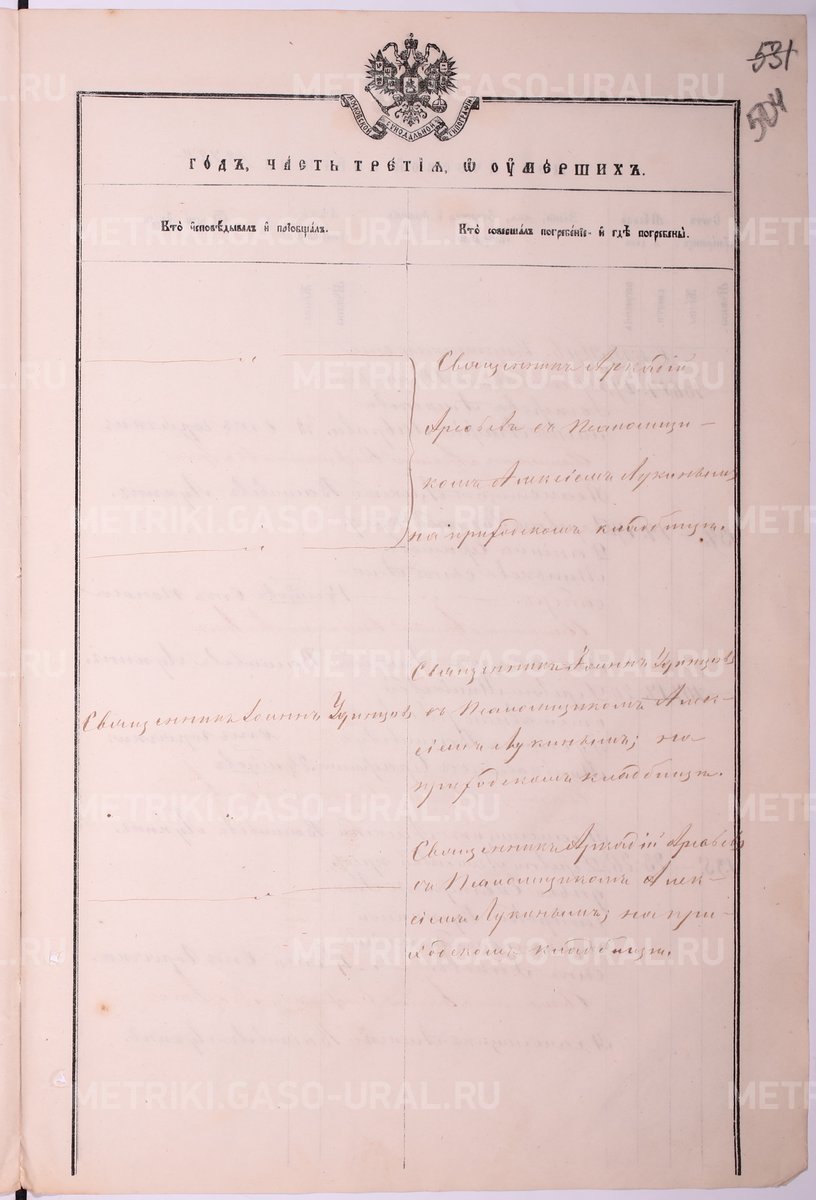 531
504
МОСКОВСКОЙ СѴНОДАЛЬНОЙ ТИПОГРАФІИ
ГО́ДЪ, ЧА́СТЬ ТРЕ́ТІѦ, Ѡ ОУМЕ́РШИХЪ.
Кто̀ и҆сповѣ́дывалъ и҆ пріѡбща́лъ.
Кто̀ соверша́лъ погребе́ніе и҆ гдѣ̀ погребены̀.
Священникъ Аркадій
съ Псаломщи-
комъ Алексіемъ Лукинымъ
на приходскомъ кладбищѣ.
Священникъ Іоаннъ Удинцовъ
Священникъ Іоаннъ Удинцовъ
съ Псаломщикомъ Алек-
сіемъ Лукинымъ; на
приходскомъ кладбищѣ.
Священникъ Аркадій
съ Псаломщикомъ Алек-
сіемъ Лукинымъ; на при-
ходскомъ кладбищѣ.
METRIKI.GASO-URAL.RU